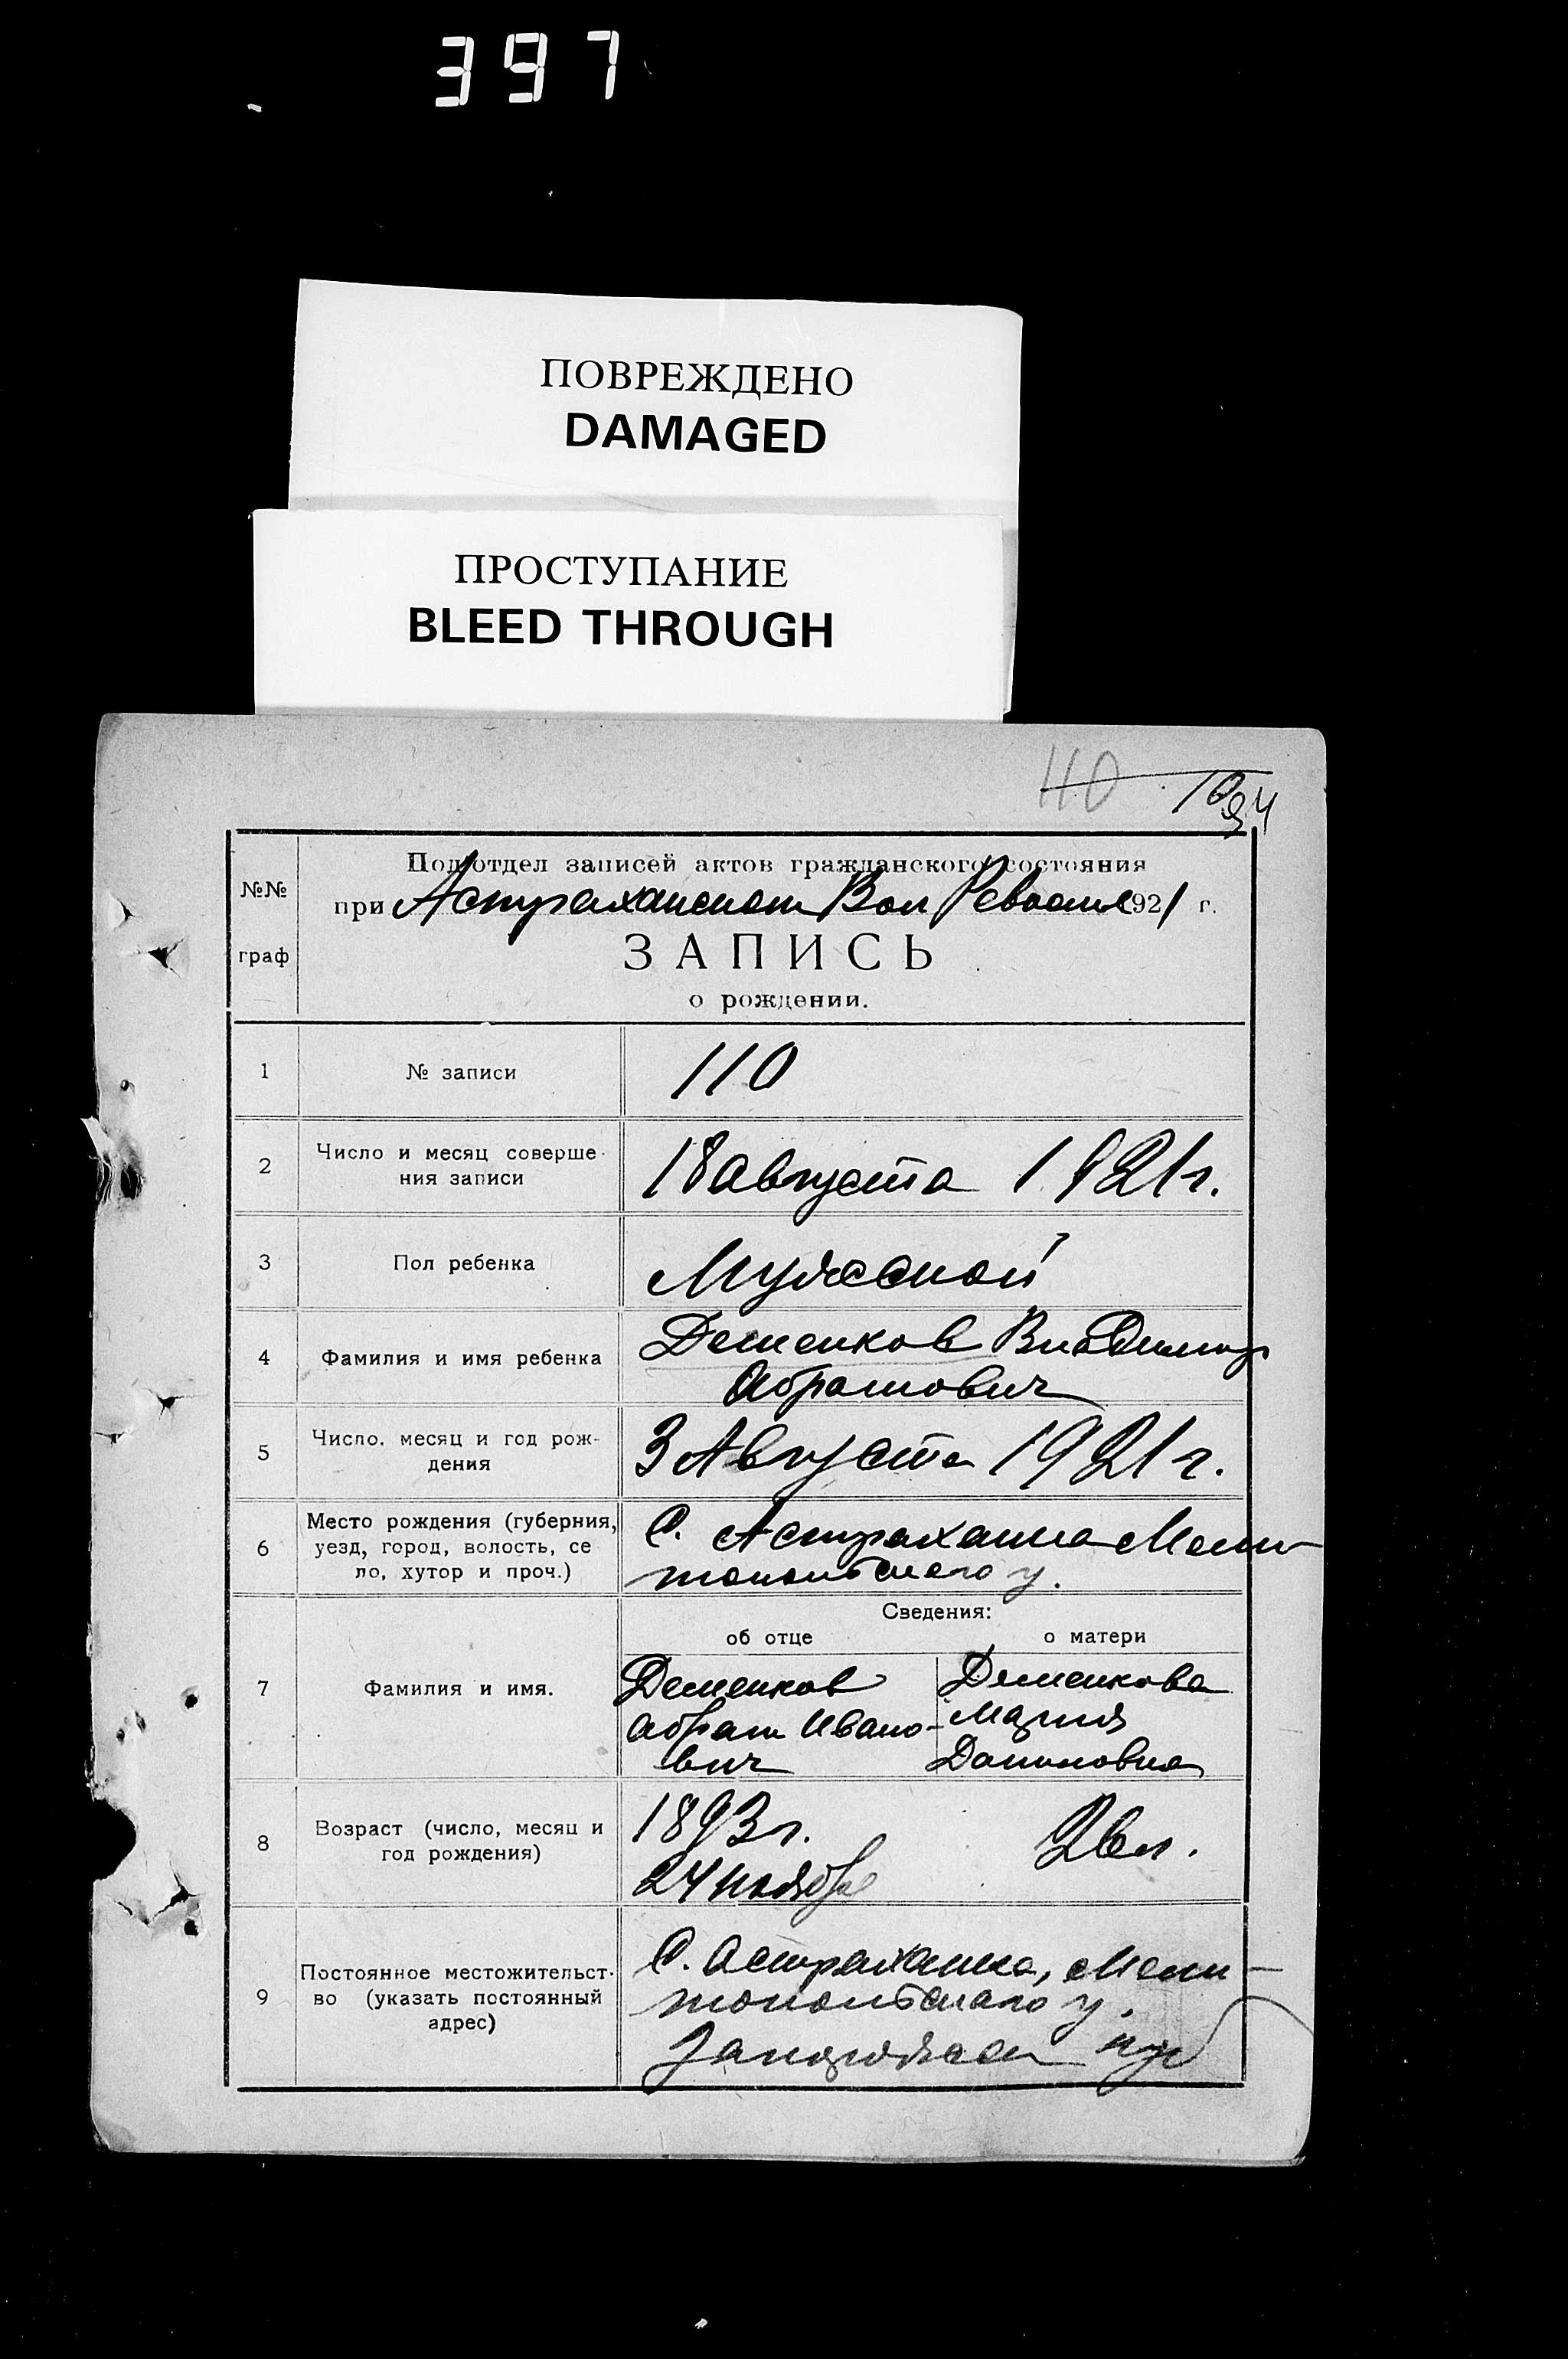 397
ПОВРЕЖДЕНО
DAMAGED
ПРОСТУПАНИЕ
BLEED THROUGH
110
94
№№
граф
Подотдел записей актов гражданского состояния
при Астраханском Вол Ревкоме 1921 г.
ЗАПИСЬ
о рождении.
1 № записи 110
2 Число и месяц соверше-
ния записи 18 августа 1921 г.
3 Пол ребенка Мужской
4 Фамилия и имя ребенка Деменков Владимир
Абрамович
5 Число. месяц и год рож-
дения 3 Августа 1921 г.
6 Место рождения (губерния,
уезд, город, волость, се
ло, хутор и проч.) С. Астраханка Мели-
топольского у.
Сведения:
об отце о матери
7 Фамилия и имя.
Деменков Деменкова
Абрам Ивано- Мария
вич Даниловна
8 Возраст (число, месяц и
год рождения)
1893 г.
24 ноября
9 Постоянное местожительст-
во (указать постоянный
адрес)
С. Астраханка, Мели-
топольского у.
губ